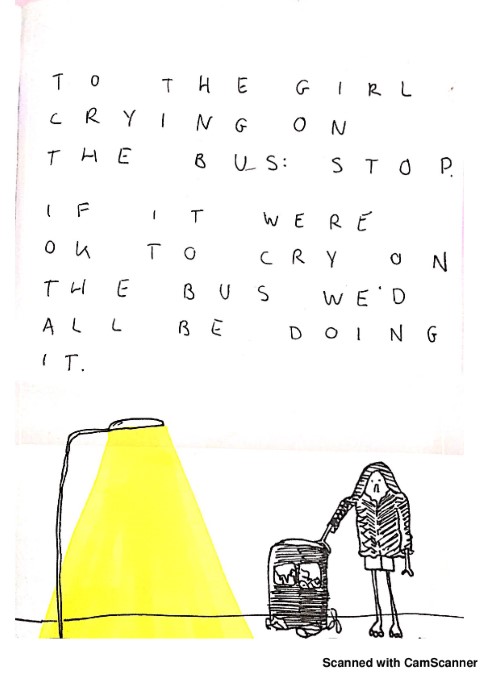 TO THE GIRL
CRYING ON
THE BUS: STOP.
IF IT WERE
OK TO CRY ON
THE BUS WE'D
ALL BE DOING
IT.
Scanned with CamScanner